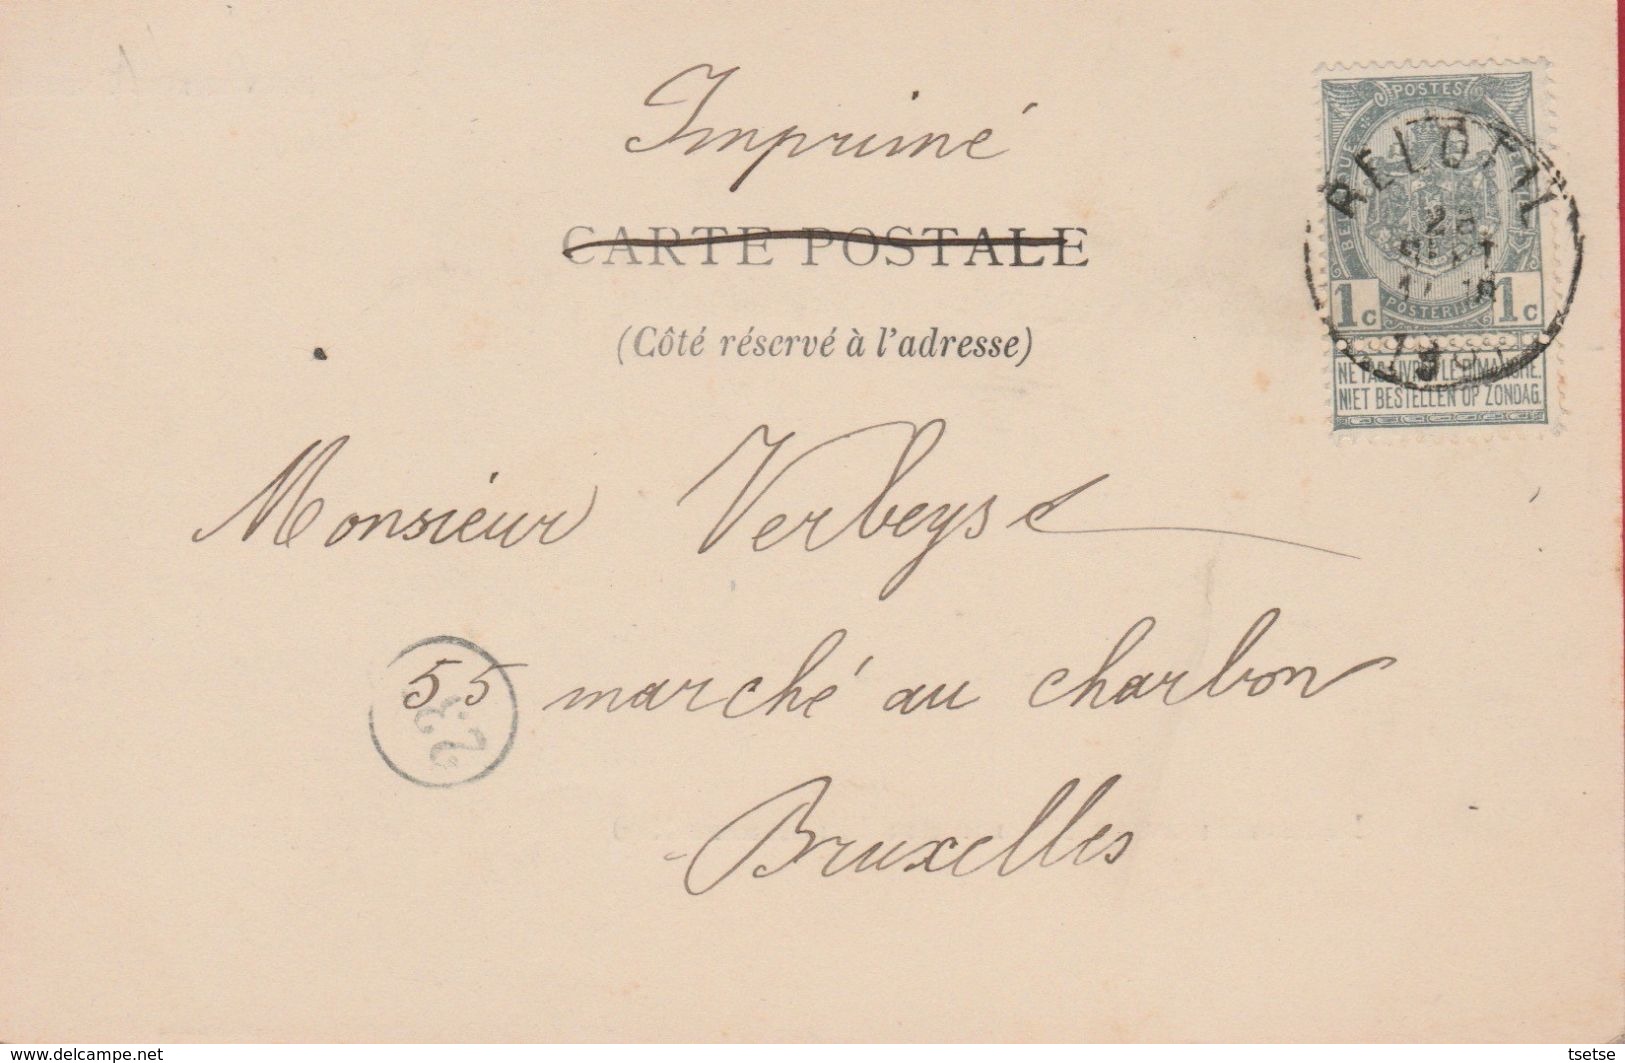 Imprimé
CARTE POSTALE
(Côté réservé à l'adresse)
POSTES
BELGIQUE
POSTERIJEN
1c 1c
NE PAS LIVRER LE DIMANCHE.
NIET BESTELLEN OP ZONDAG.
BELOEIL
SEPT
Monsieur Verbeyst
55 marché au charbon
Bruxelles
23
www.delcampe.net
tsetse